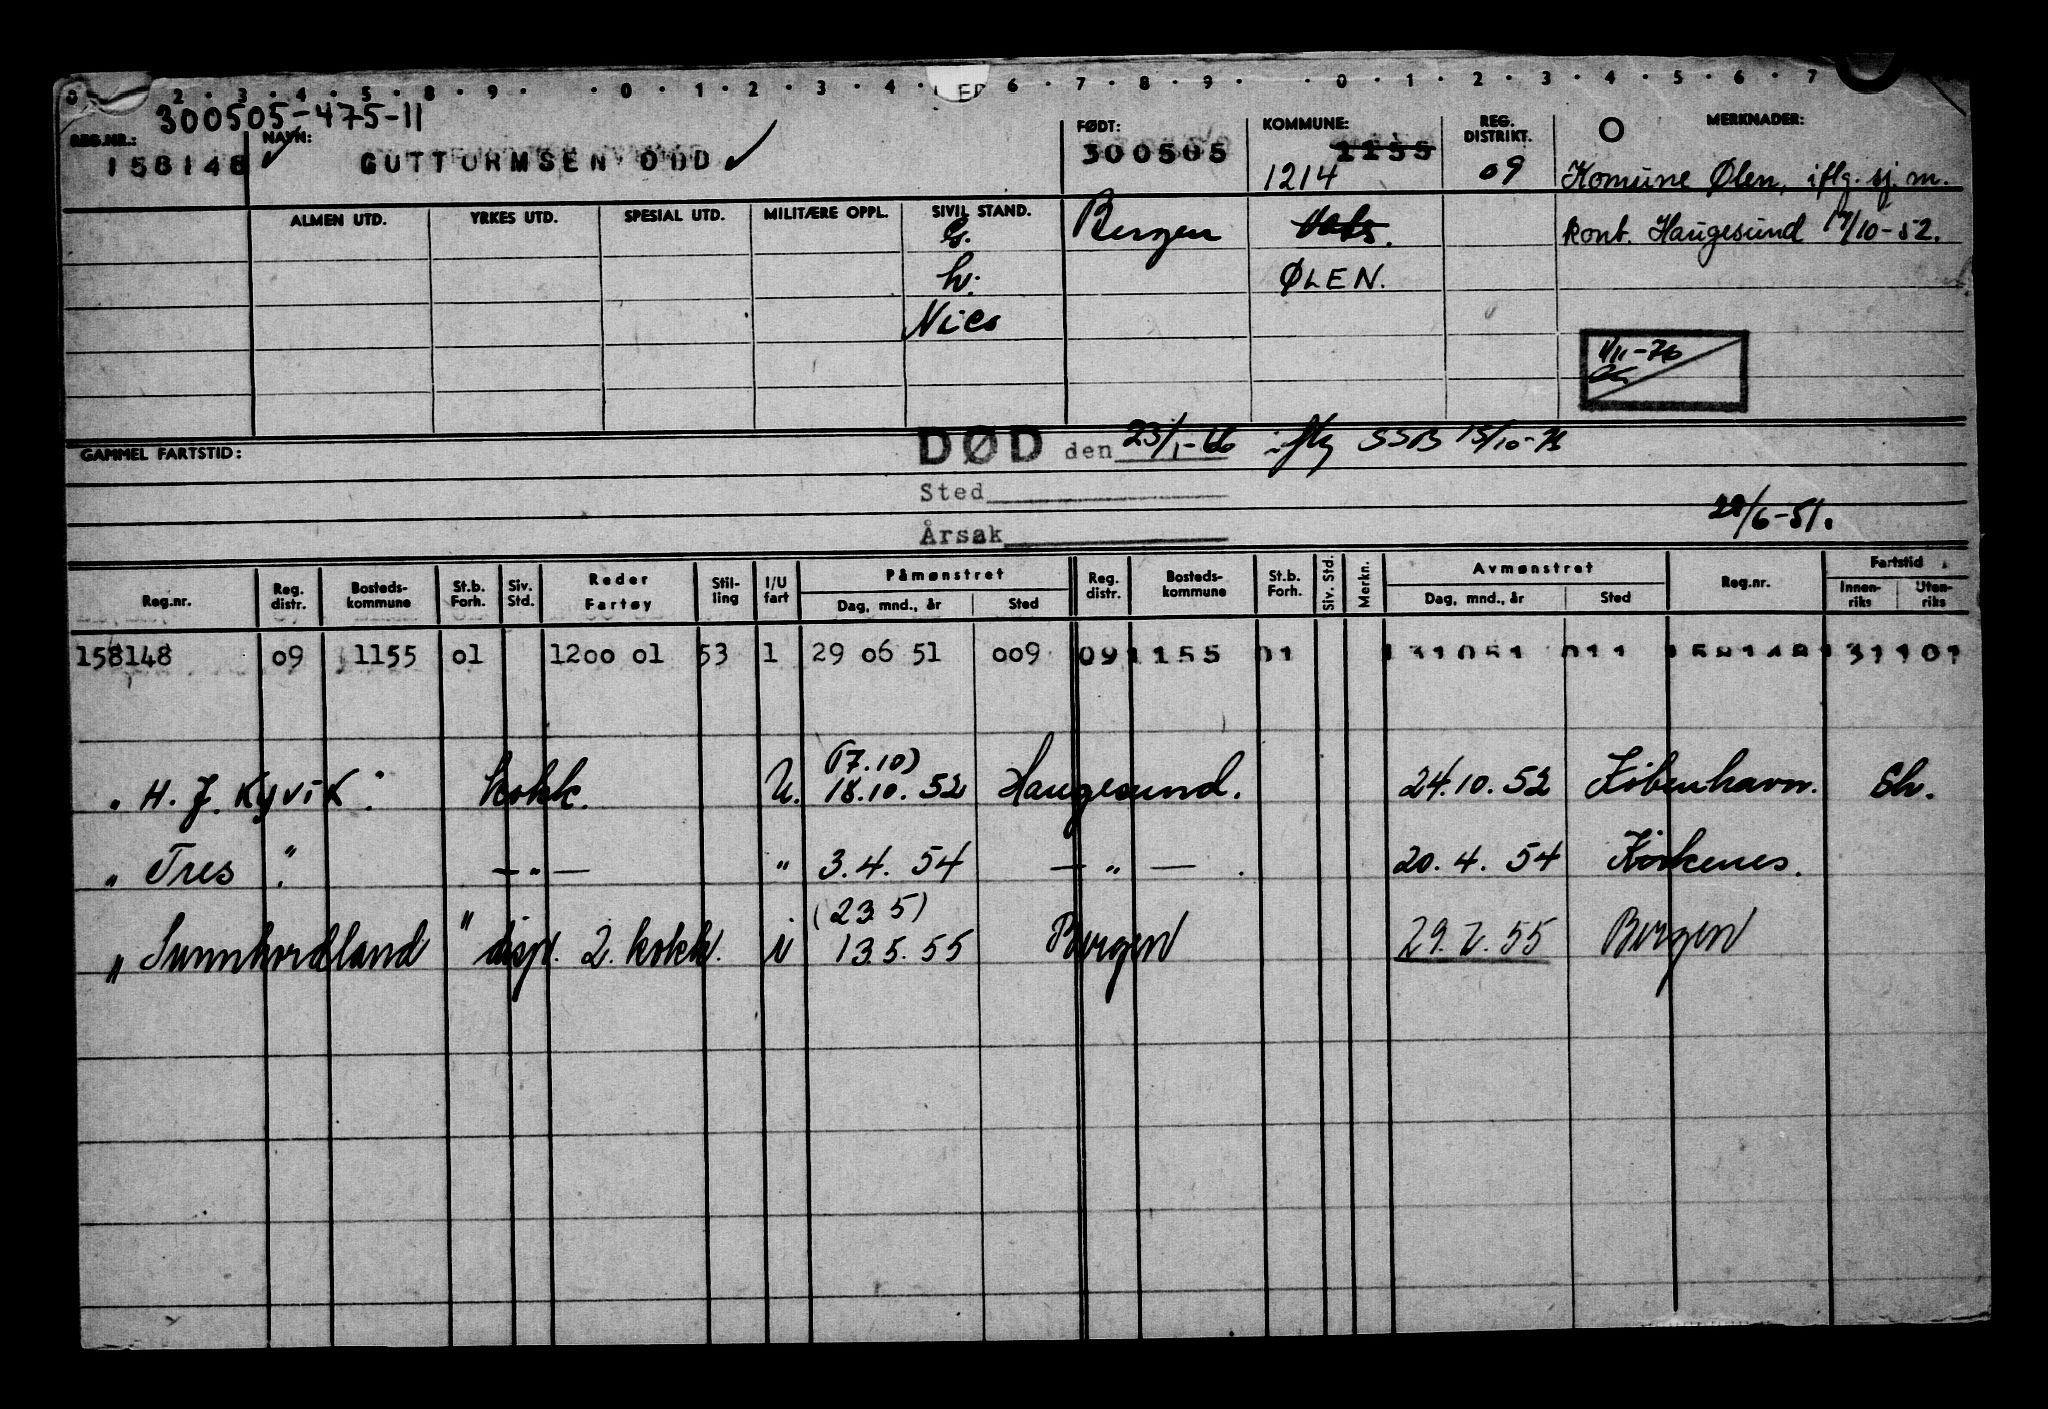 300505-475-11
REG.NR.: NAVN: FØDT: KOMMUNE: REG. DISTRIKT. MERKNADER:
158148 GUTTORMSEN ODD 300505 1155 1214 09 Komune Ølen, iflg. sj. m.
ALMEN UTD. YRKES UTD. SPESIAL UTD. MILITÆRE OPPL. SIVIL STAND. Bergen kont. Haugesund 17/10-52.
G.
h. ØLEN.
1/11-76
GAMMEL FARTSTID: DØD den 23/1-66 iflg SSB 15/10-76
Sted
Årsak 29/6-51.
Reg.nr. Reg. distr. Bosteds-kommune St.b. Forh. Siv. Std. Reder Fartøy Stil-ling I/U fart Påmønstret Dag, mnd., år Sted Reg. distr. Bosteds-kommune St.b. Forh. Siv. Std. Merkn. Avmønstret Dag, mnd., år Sted Reg.nr. Fartstid Innen-riks Uten-riks
158148 09 1155 01 1200 01 53 1 29 06 51 009 09 1155 01 131051 011 158148 131101
(17.10)
" H. J. Kyvik". Kokk. U. 18.10.52 Haugesund. 24.10.52 København. Eh.
" Tres ". — " — " 3.4.54 — " — . 20.4.54 Kirkenes.
(23 5)
" Sunnhordland " disp. 2. kokk. i 13.5.55 Bergen 29.7.55 Bergen